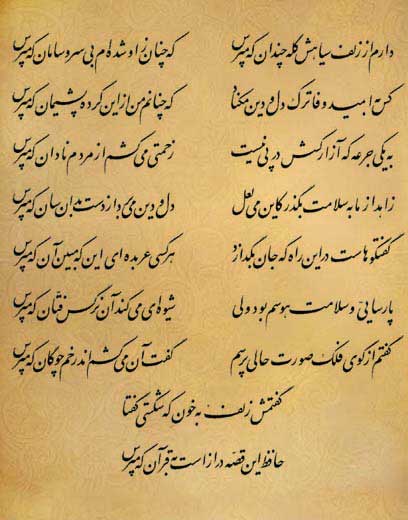 دارم از زلف سیاهش گله چندان که مپرس که چنان زاو شده ام بی سر و سامان که مپرس
کس به امید وفا ترک دل و دین مکناد که چنانم من از این کرده پشیمان که مپرس
به یکی جرعه که آزار کسش در پی نیست زحمتی می کشم از مردم نادان که مپرس
زاهد از ما به سلامت بگذر کاین می لعل دل و دین می برد از دست بدان سان که مپرس
گفتگوهاست در این راه که جان بگدازد هر کسی عربده ای این که مبین آن که مپرس
پارسایی و سلامت هوسم بود ولی شیوه ای می کند آن نرگس فتّان که مپرس
گفتم از گوی فلک صورت حالی پرسم گفت آن می کشم اندر خم چوگان که مپرس
گفتمش زلف به خون که شکستی گفتا
حافظ این قصّه دراز است به قرآن که مپرس